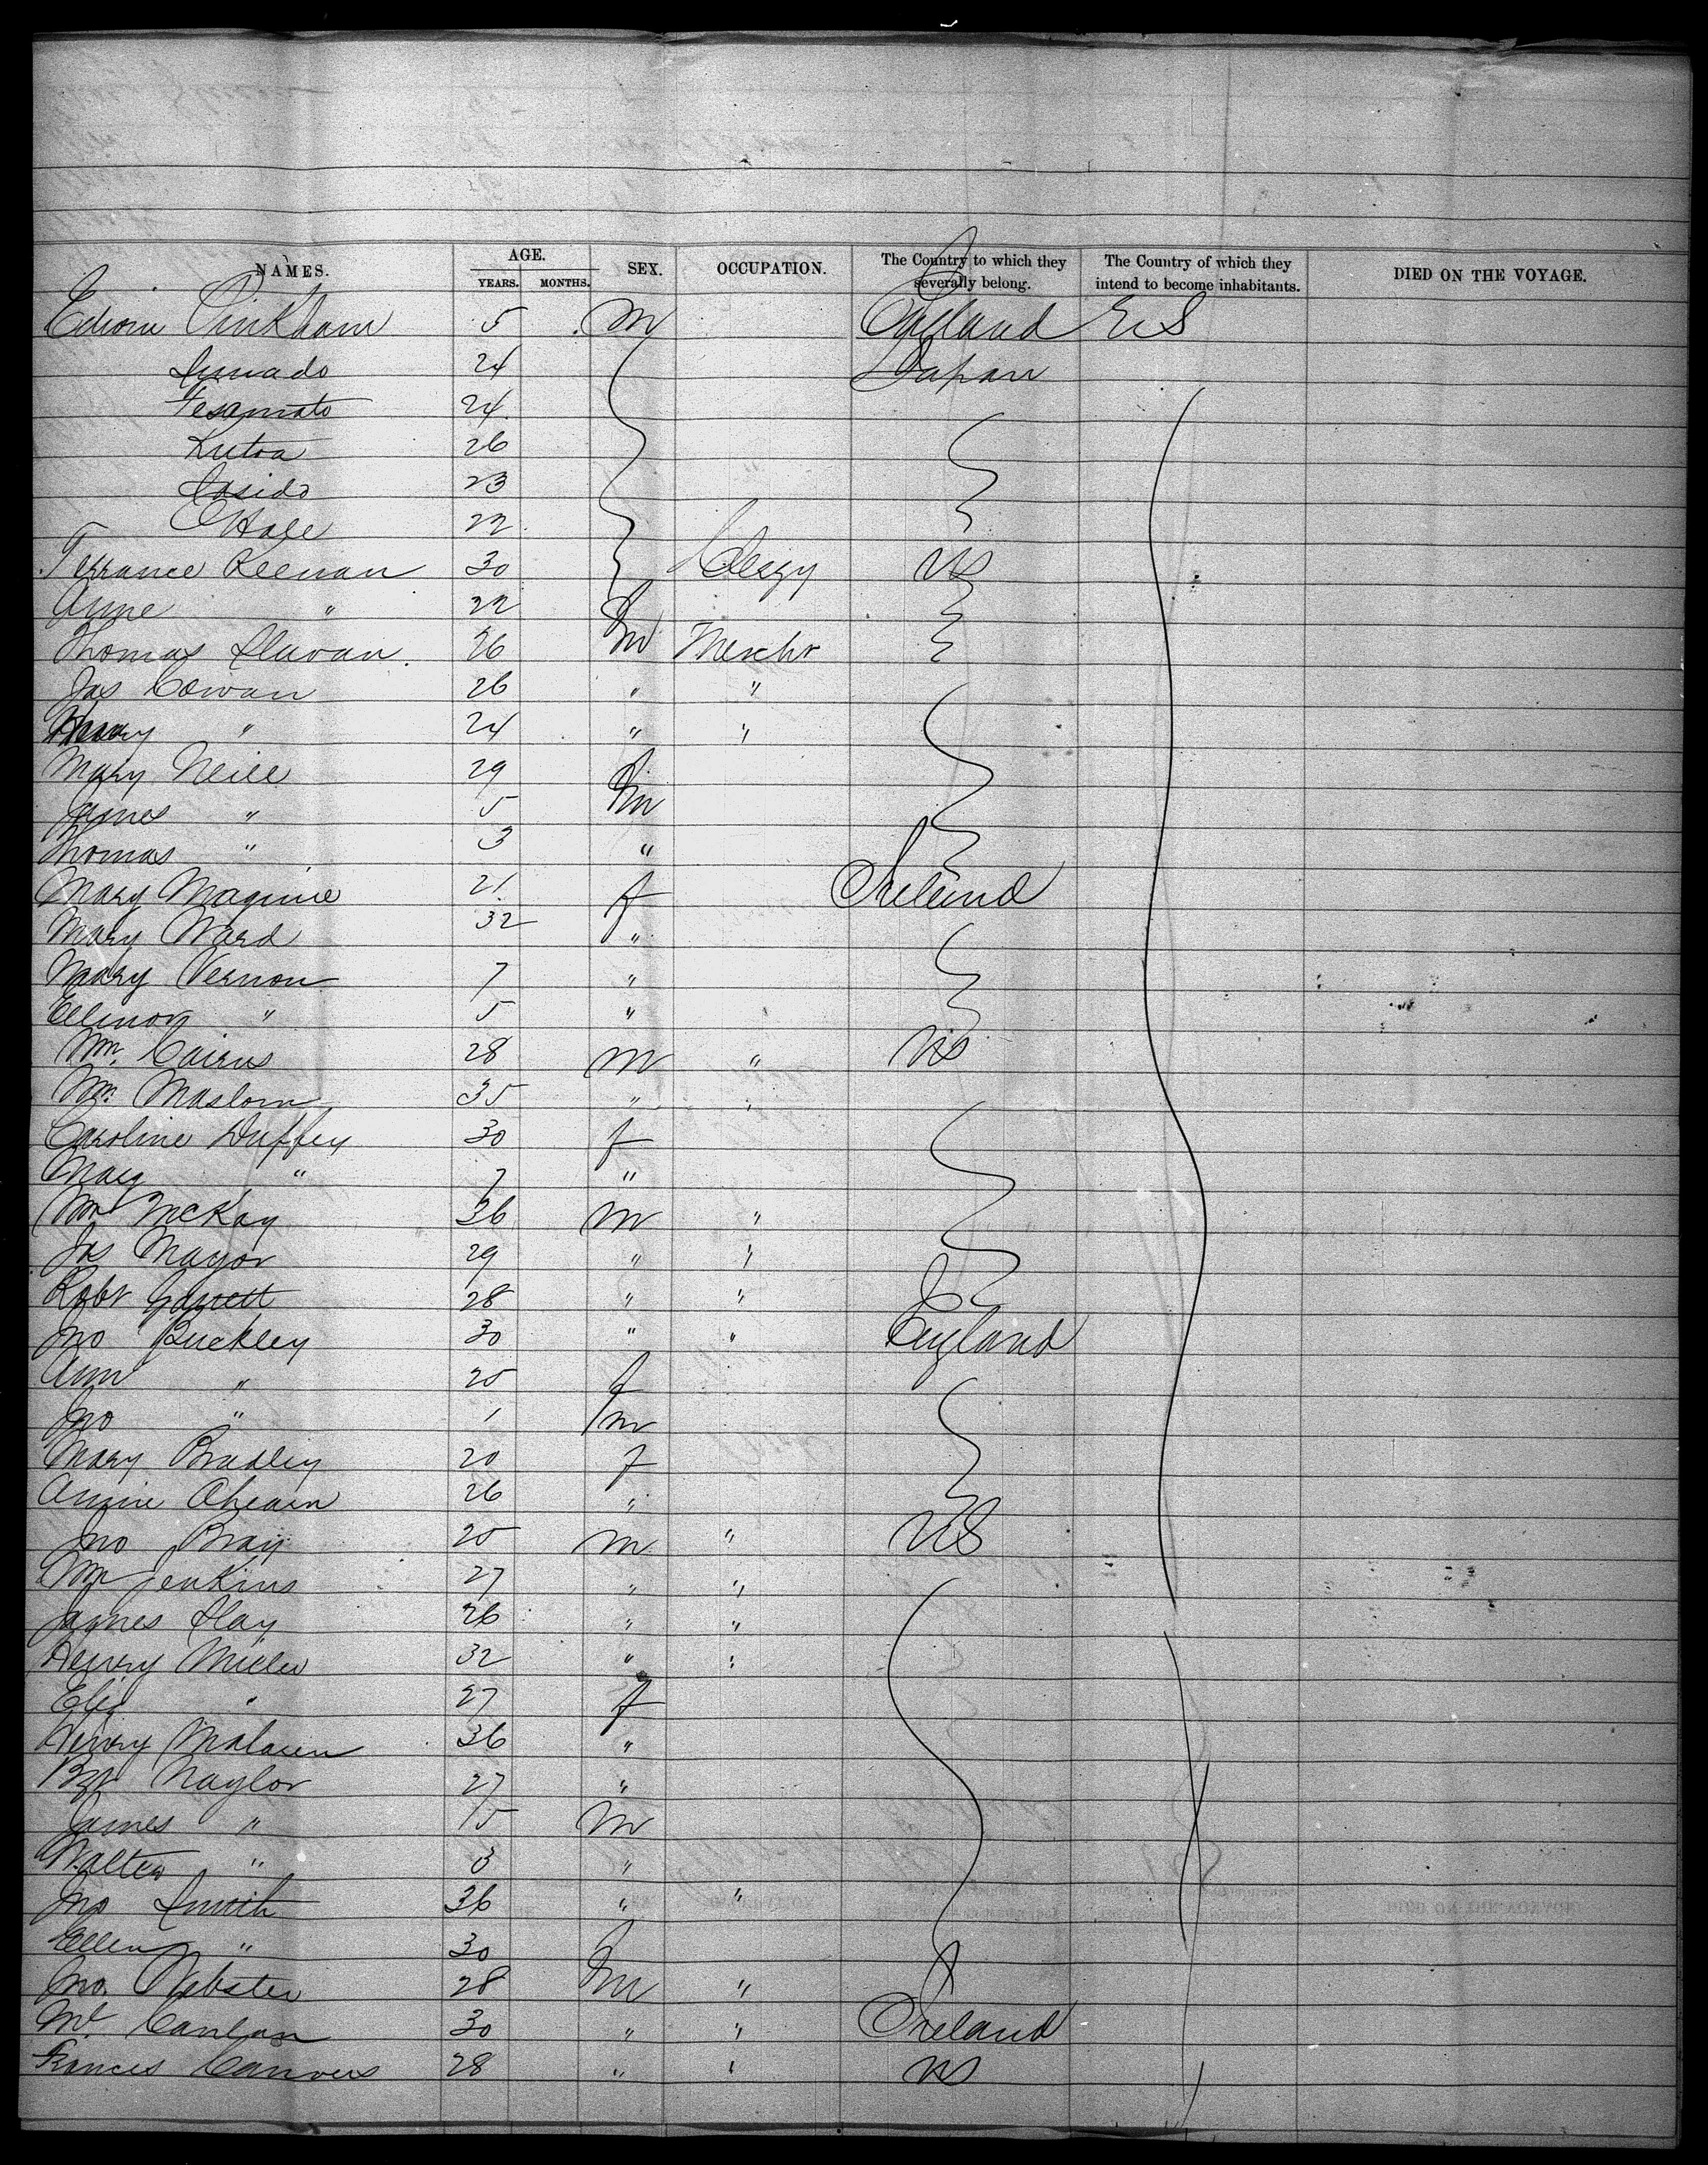 NAMES. AGE. YEARS. MONTHS. SEX. OCCUPATION. The Country to which they severally belong. The Country of which they intend to become inhabitants. DIED ON THE VOYAGE.
Edwin Pinkham 5 m England U S
24 Japan
Fesamato 24
26
23
22
Terrance Keenan 30 Clergy US
Anne " 22 f
Thomas Slavan 26 m Mercht
Jas Cowan 26 " "
Henry " 24 " "
Mary Neill 29 f
James " 5 m
Thomas " 3 "
Mary Maguire 21 f Ireland
Mary Ward 32 "
Mary Vernon 7 "
Ellinor " 5 "
Wm. Cairns 28 m " US
Wm. Maslom 35 " "
Caroline Duffey 30 f
Mary " 7 "
Wm McKay 36 m "
Jas Mayor 29 " "
Robt Garrett 28 " "
Jno Buckley 30 " " England
Ann " 20 f
Jno " 1 m
Mary Bradley 20 f
Annie Ahearn 26 "
Jno Bray 20 m " US
Wm Jenkins 27 " "
James Hay 26 " "
Henry Miller 32 " "
Eliz " 27 f
Henry 36 "
Naylor 27 "
James " 5 m
Walter " 3 "
Jno Smith 36 " "
Ellen " 30 f
Jno. Webster 28 m "
Canlan 30 " " Ireland
Frances 28 " " US